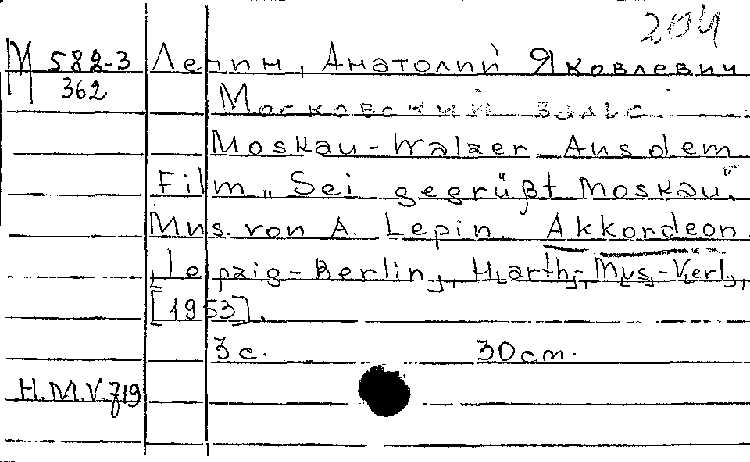 204
М 582-3 Лепин, Анатолий Яковлевич
362 Московский вальс.
Moskau-Walzer. Aus dem
Film „Sei gegrüßt Moskau".
Mus. von A. Lepin. Akkordeon.
Leipzig-Berlin, Harth-Mus-Verl,
[1953].
3 с. 30 cm.
H.M.V. 719